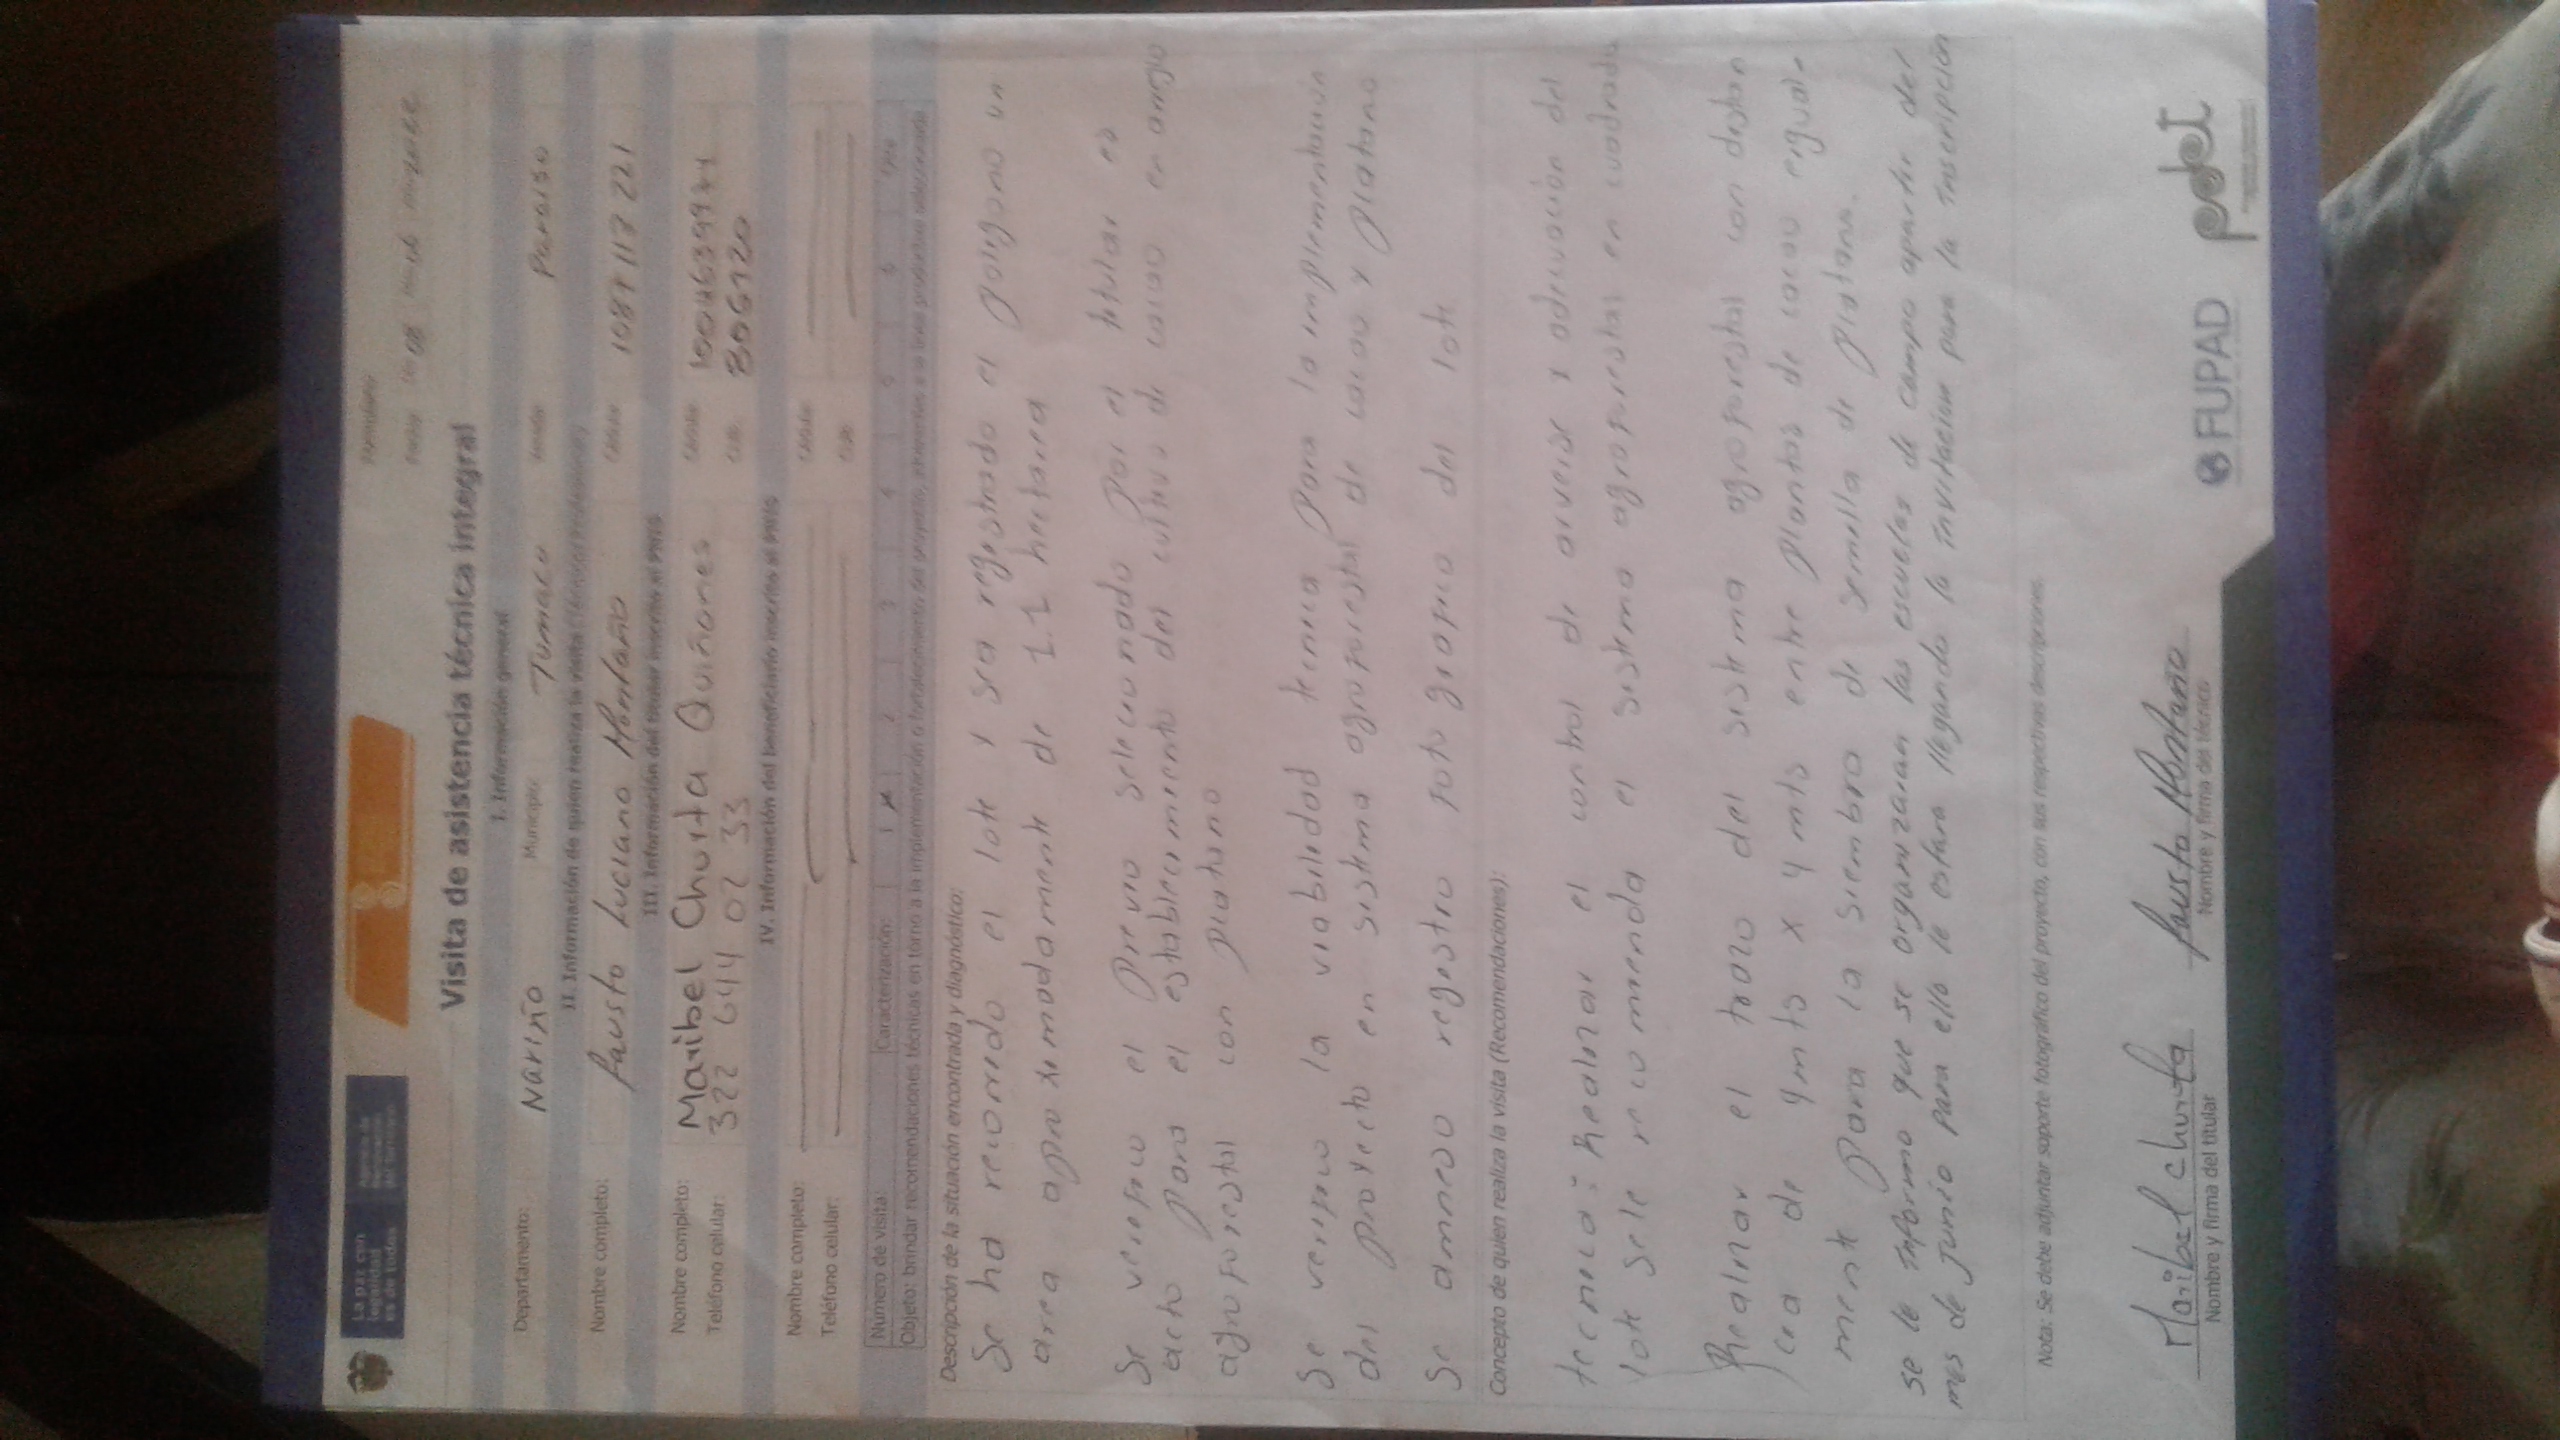 La paz con legalidad es de todos
Agencia de Renovación del Territorio
Formulario
Visita de asistencia técnica integral
Fecha
I. Información general
Departamento: Nariño Municipio: Tumaco Vereda: Paraiso
II. Información de quien realiza la visita
Nombre completo: Fausto Luciano Montaño Cédula: 1087113221
III. Información del titular inscrito al PNIS
Nombre completo: Maribel Churta Quiñones Cédula:
Teléfono celular: 322 644 02 33 Cub:
IV. Información del beneficiario inscrito al PNIS
Nombre completo: Cédula:
Teléfono celular: Cub:
Número de visita: Caracterización: 1 X 2 3 4 5 6 Otra
Objeto: brindar recomendaciones técnicas en torno a la implementación o fortalecimiento del proyecto, inherentes a la línea productiva seleccionada
Descripción de la situación encontrada y diagnóstico:
Se ha recorrido el lote y sea registrado el poligono un
area aproximadamente de 1.1 hectarea
Se verifico el Previo seleccionado Por el titular es
acto para el establecimiento del cultivo de cacao en arreglo
agroforestal con platano
Se verifico la viabilidad tecnica para la implementación
del proyecto en sistema agroforestal de cacao y platano
Se annexo registro fotografico del lote
Concepto de quien realiza la visita (Recomendaciones):
tecnica: Realizar el control de arvense y adecuación del
lote se le recomienda el sistema agroforestas en cuadrado
Realizar el trazo del sistema agroforestal con distan
cia de 4 mts x 4 mts entre plantas de cacao e igual-
mente para la siembra de semilla de platano.
se le informo que se organizaran las escuelas de campo apartir del
mes de junio para ello le estara llegando la invitacion para la inscripción
Nota: Se debe adjuntar soporte fotográfico del proyecto, con sus respectivas descripciones.
Maribel churta Fausto Montaño
Nombre y firma del titular Nombre y firma del técnico
FUPAD pdet